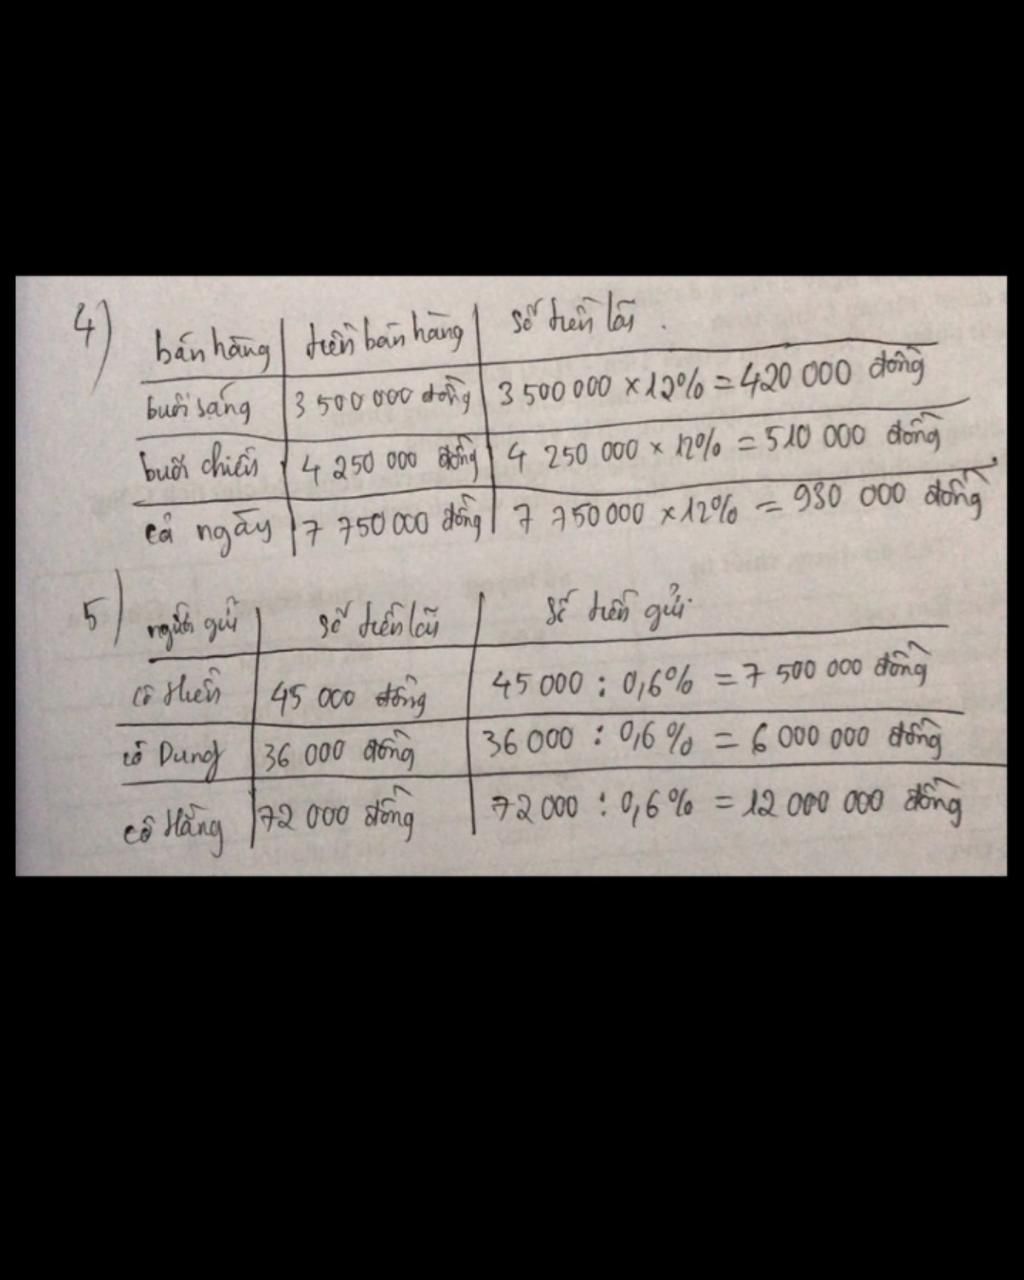 4)
bán hàng | tiền bán hàng | số tiền lãi.
buổi sáng | 3 500 000 đồng | 3 500 000 × 12% = 420 000 đồng
buổi chiều | 4 250 000 đồng | 4 250 000 × 12% = 510 000 đồng
cả ngày | 7 750 000 đồng | 7 750 000 × 12% = 930 000 đồng
5)
người gửi | số tiền lãi | số tiền gửi
cô Hiền | 45 000 đồng | 45 000 : 0,6% = 7 500 000 đồng
cô Dung | 36 000 đồng | 36 000 : 0,6% = 6 000 000 đồng
cô Hằng | 72 000 đồng | 72 000 : 0,6% = 12 000 000 đồng